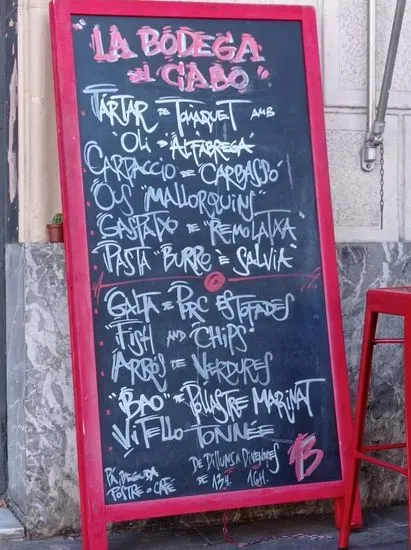 LA BODEGA
"EL GABO"
TÀRTAR DE TOMÀQUET AMB
OLI D'ALFÀBREGA
CARPACCIO DE CARBASSÓ
OUS "MALLORQUINS"
GASPATXO DE REMOLATXA
PASTA "BURRO E SALVIA"
GALTA DE PORC ESTOFADES
"FISH AND CHIPS"
ARRÒS DE VERDURES
"BAO" DE POLLASTRE MARINAT
VITELLO TONNÉE
PA, BEGUDA
POSTRE o CAFÈ
DE DILLUNS A DIVENDRES
DE 13H. A 16H.
13